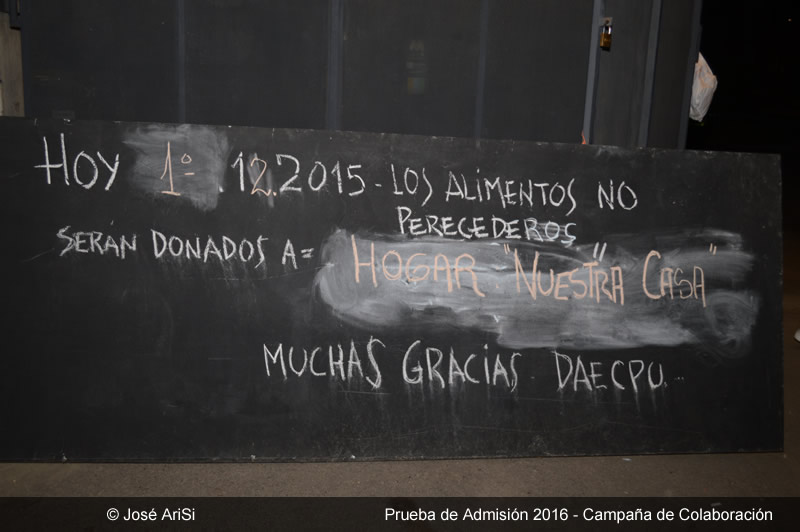 HOY 1º.12.2015-LOS ALIMENTOS NO
PERECEDEROS
SERÁN DONADOS A= HOGAR "NUESTRA CASA"
MUCHAS GRACIAS. DAECPU...
© José AriSi Prueba de Admisión 2016 - Campaña de Colaboración